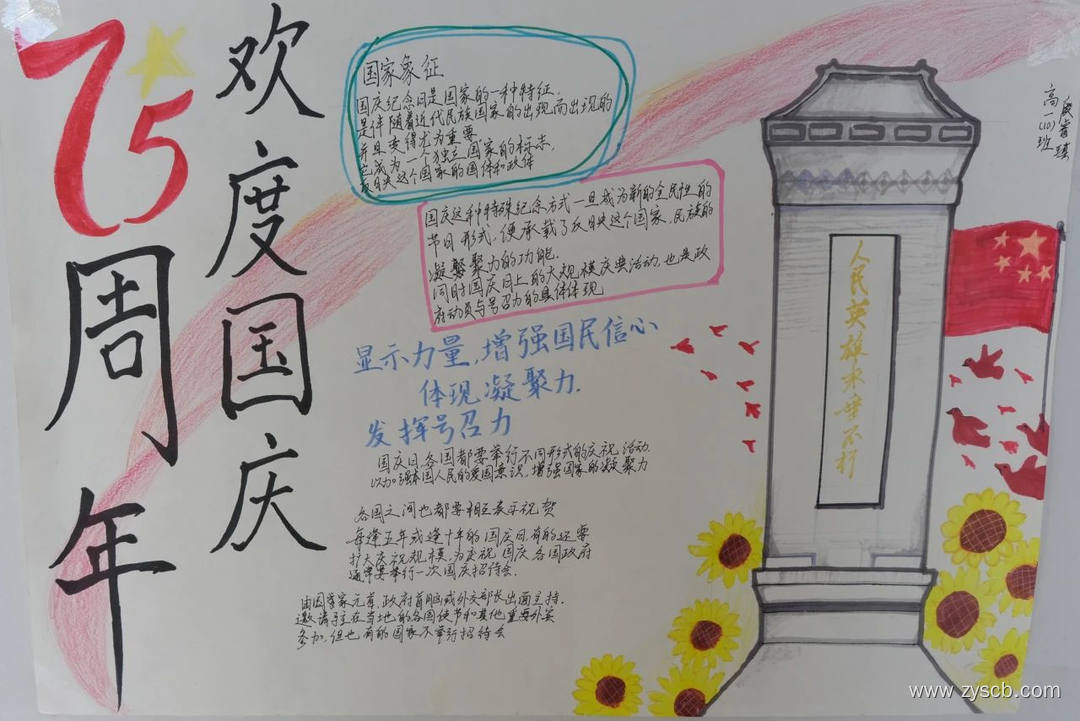 75
周
年
欢
度
国
庆
国家象征
国庆纪念日是国家的一种特征,
是伴随着近代民族国家的出现而出现的
并且变得尤为重要
它成为一个独立国家的标志,
反映这个国家的国体和政体
国庆这种特殊纪念方式一旦成为新的全民性的
节日形式,便承载了反映这个国家、民族的
凝聚力的功能.
同时国庆日上的大规模庆典活动,也是政
府动员与号召力的具体体现
显示力量,增强国民信心
体现凝聚力.
发挥号召力
国庆日各国都要举行不同形式的庆祝活动.
以加强本国人民的爱国意识,增强国家的凝聚力
各国之间也都要相互表示祝贺
每逢五年或逢十年的国庆日,有的还要
扩大庆祝规模,为庆祝国庆,各国政府
通常要举行一次国庆招待会.
由国家元首,政府首脑或外交部长出面主持.
邀请驻在当地的各国使节和其他重要外宾
参加.但也有的国家不举行招待会
人民英雄永垂不朽
高一(10)班
www.zyscb.com